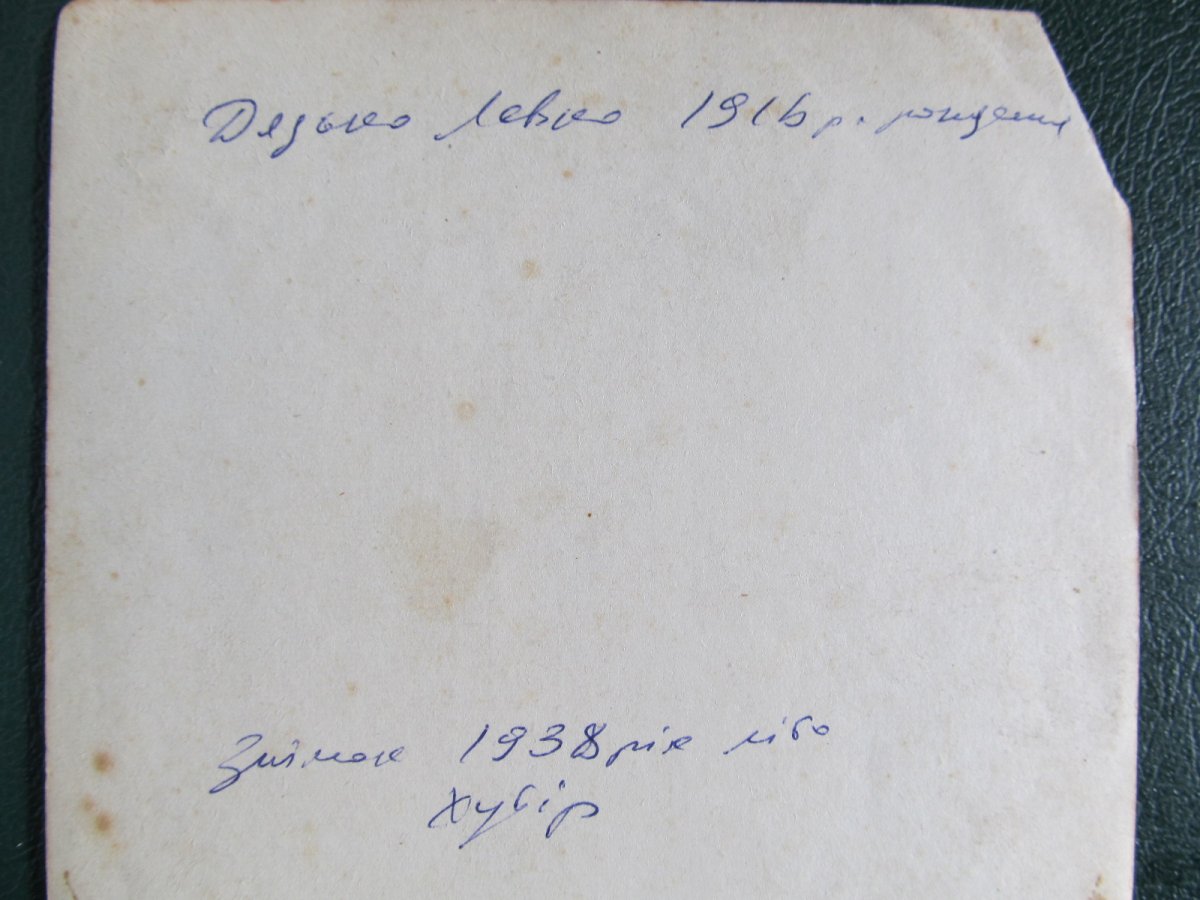 Дядько Левко 1916 р. рождения
Знімок 1938 рік літо
Хутір